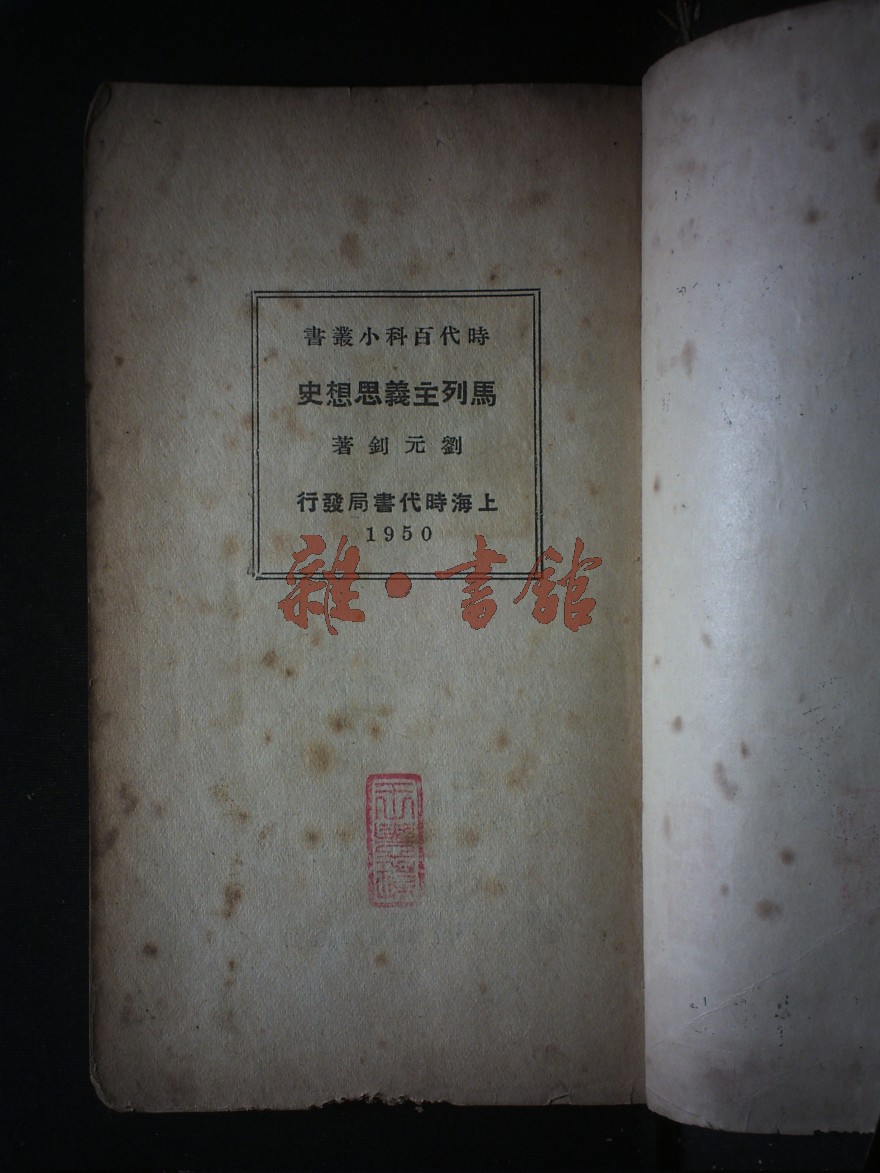 時代百科小叢書
馬列主義思想史
劉元釗著
上海時代書局發行
1950
雜·書館